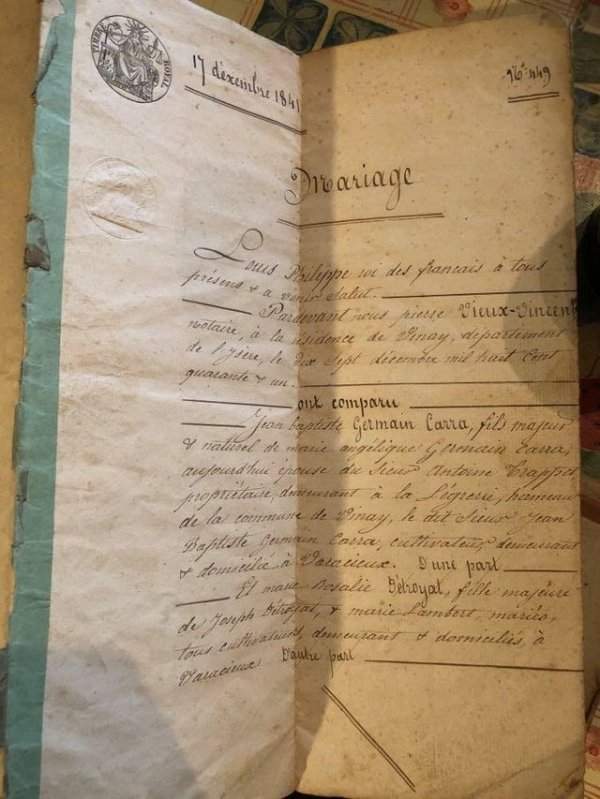 TIMBRE ROYAL
17 décembre 1841
N° 449
Mariage
Louis Philippe roi des francais à tous
présens & a venir Salut.
Pardevant nous pierre Vieux-Vincent
notaire, à la résidence de Vinay, département
de l'ysère, le dix Sept décembre mil huit Cent
quarante & un.
ont comparu
Jean baptiste Germain Carra, fils majeur
& naturel de marie angélique Germain Carra,
aujourd'hui épouse du Sieur Antoine Trappa
propriétaire, demeurant à la hameau
de la commune de Vinay, le dit Sieur Jean
Baptiste Germain Carra, cultivateur, demeurant
& domicilié à Varacieux. D'une part
Et marie Rosalie Détroyat, fille majeure
de Joseph Détroyat, & marie Lambert, mariés,
tous cultivateurs, demeurant & domiciliés, à
Varacieux D'autre part